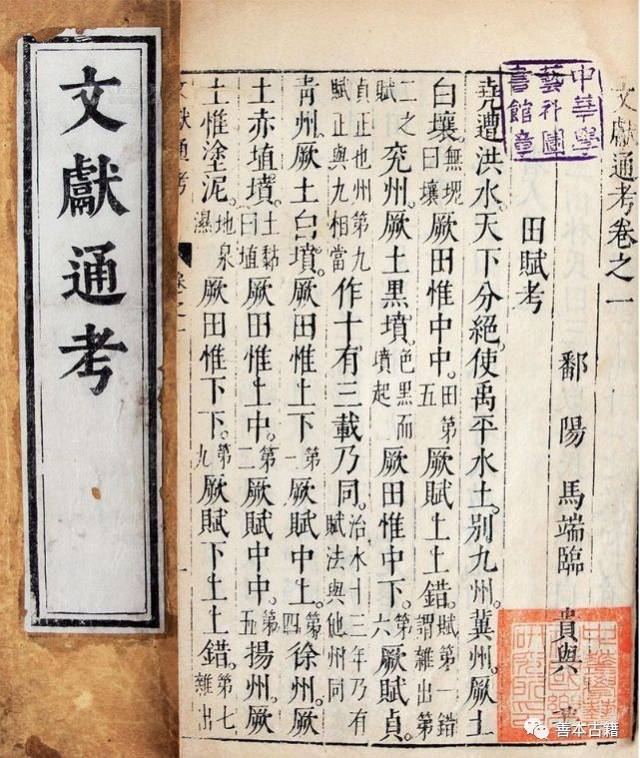 文獻通考
中華學
藝社圖
書館章
文獻通考卷之一
鄱陽 馬端臨 貴與
田賦考
堯遭洪水。天下分絕。使禹平水土。別九州。冀州。厥土
白壤。無塊曰壤厥田惟中中。田第五厥賦上上錯。賦第一錯謂雜出第
二之賦兗州。厥土黑墳。色黑而墳起厥田惟中下。第六厥賦貞。
貞正也州第九賦正與九相當作十有三載乃同。治水十三年乃有賦法與他州同
青州。厥土白墳。厥田惟上下。第厥賦中上。第四徐州。厥
土赤埴墳。土黏曰埴厥田惟上中。第二厥賦中中。第五揚州。厥
土惟塗泥。地泉濕厥田惟下下。第九厥賦下上上錯。第七雜出
文獻通考 卷之一
善本古籍